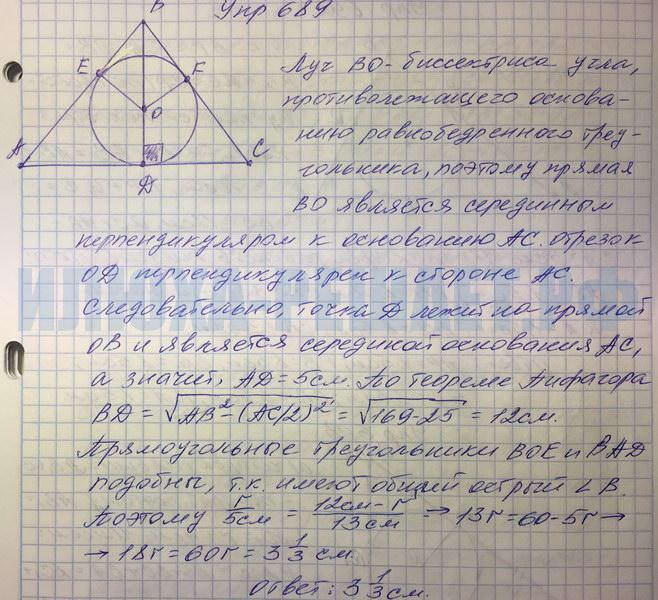 Упр 689
B
E
F
O
A
C
D
Луч BO - биссектриса угла,
противолежащего основа-
нию равнобедренного треу-
гольника, поэтому прямая
BO является серединным
перпендикуляром к основанию AC. Отрезок
OD перпендикулярен к стороне AC.
Следовательно, точка D лежит на прямой
OB и является серединой основания AC,
а значит, AD = 5см. По теореме Пифагора
BD = √AB² - (AC/2)² = √169-25 = 12см.
Прямоугольные треугольники BOE и BAD
подобны, т.к. имеют общий острый ∠ B.
Поэтому r/5см = 12см - r/13см → 13r = 60 - 5r →
→ 18r = 60r = 3 1/3 см.
Ответ: 3 1/3 см.